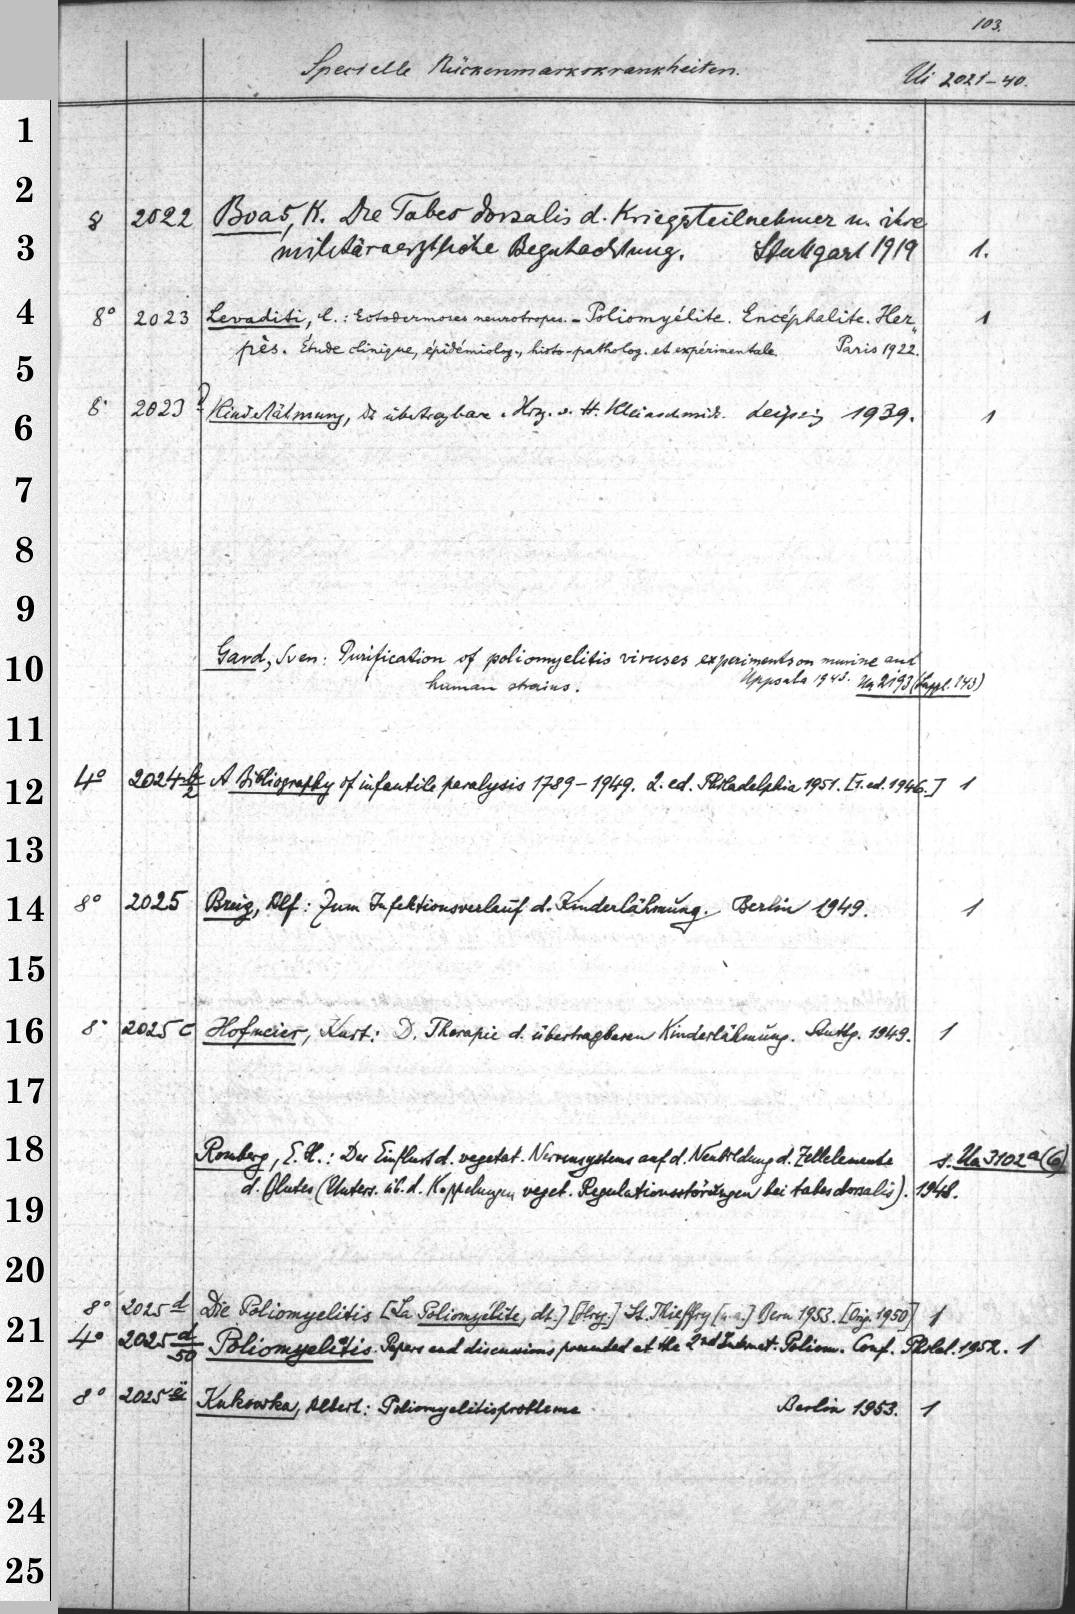 103.
Specielle Rückenmarkskrankheiten. Ui 2021-40.
1
2
8 2022 Boas, K. Die Tabes dorsalis d. Kriegsteilnehmer u. ihre
3 militäraerztliche Begutachtung. Stuttgart 1919 1.
4 8° 2023 Levaditi, C.: Ectodermoses neurotropes. - Poliomyélite. Encéphalite. Her„
près. Étude clinique, épidémiolog., histo-patholog. et expérimentale. Paris 1922. 1
5
6 8° 2023 Kinderlähmung, Die übertragbare. Hrg. v. H. Kleinschmidt. Leipzig 1939. 1
7
8
9
10 Gard, Sven: Purification of poliomyelitis viruses experiments on murine and
human strains. Uppsala 1943. Ua 2193 (Suppl. 143)
11
12 4° 2024 b/2 A Bibliography of infantile paralysis 1789-1949. 2. ed. Philadelphia 1951. [1. ed. 1946.] 1
13
14 8° 2025 Breig, Alf: Zum Infektionsverlauf d. Kinderlähmung. Berlin 1949. 1
15
16 8° 2025 c Hofmeier, Kurt: D. Therapie d. übertragbaren Kinderlähmung. Stuttg. 1949. 1
17
18 Romberg, E. H.: Der Einfluss d. vegetat. Nervensystems auf d. Neubildung d. Zellelemente s. Ua 3102 a (6)
19 d. Blutes (Unters. üb. d. Koppelungen veget. Regulationsstörungen bei tabes dorsalis). 1948.
20
8° 2025 d Die Poliomyelitis [La Poliomyélite, dt.] [Hrg.] St. Thieffry [u. a.] Bern 1953. [Orig. 1950] 1
21 4° 2025 d/50 Poliomyelitis. Papers and discussions presented at the 2nd Internat. Poliom. Conf. Philad. 1952. 1
22 8° 2025 Kukowka, Albert: Poliomyelitisprobleme Berlin 1953. 1
23
24
25